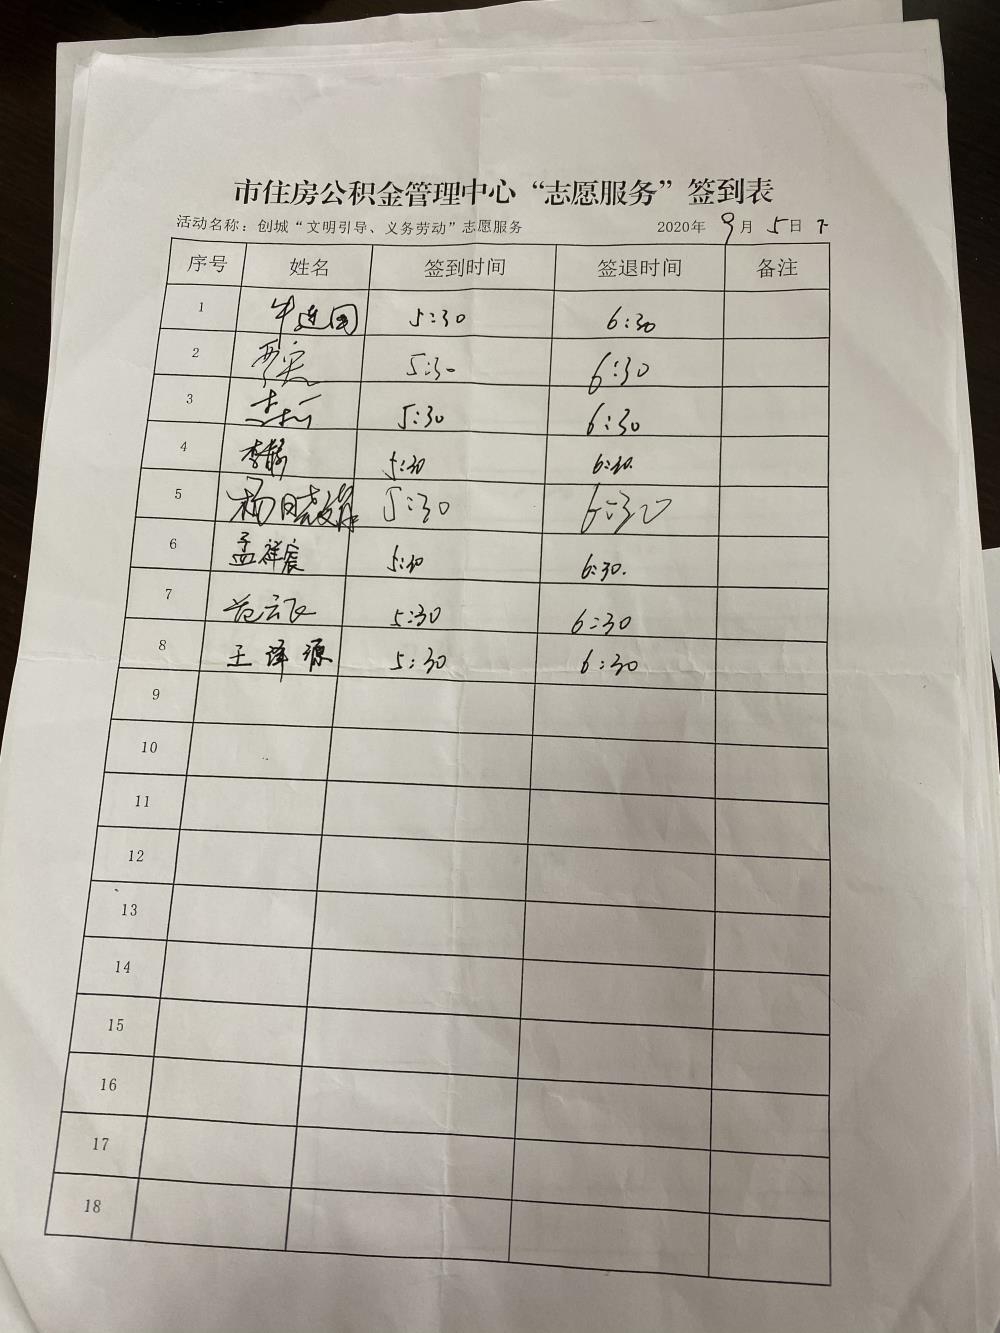 市住房公积金管理中心“志愿服务”签到表
活动名称：创城“文明引导、义务劳动”志愿服务 2020年 9月 5日 下
序号 姓名 签到时间 签退时间 备注
1 牛连国 5:30 6:30
2 5:30 6:30
3 5:30 6:30
4 李静 5:30 6:30.
5 杨晓 5:30 6:30
6 孟祥宸 5:30 6:30.
7 范云飞 5:30 6:30
8 王译源 5:30 6:30
9
10
11
12
13
14
15
16
17
18